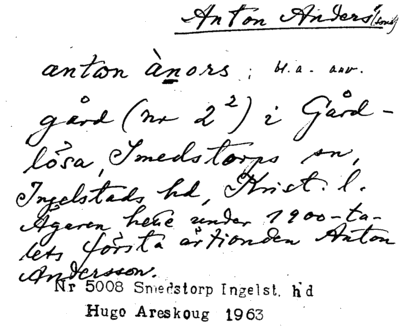 Anton Anders (smeds)
anton ànors ; bl.a. anv.
gård (nr 2²) i Gård-
lösa, Smedstorps sn,
Ingelstads hd, Krist. l.
Ägaren hette under 1900-ta-
lets första årtionden Anton
Andersson.
Nr 5008 Smedstorp Ingelst. hd
Hugo Areskoug 1963